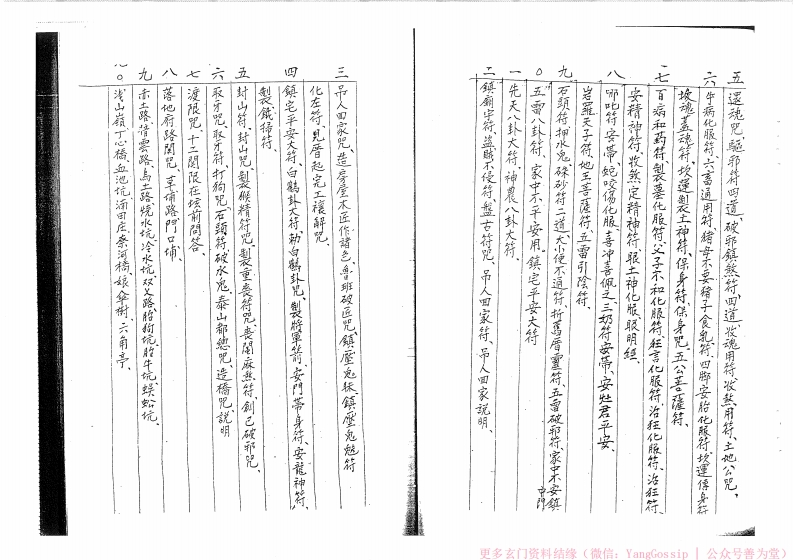 五 還魂咒、驅邪符四道、破邪鎮煞符四道、收魂用符、收煞用符、土地公咒、
六 牛病化服符、六畜通用符、豬母不要豬子食乳符、四脚安胎化服符、坎運保身符
坡魂蓋魂符、坎運製土神符、保身符、保身咒、五公菩薩符、
七 百病和药符、製墓化服符、父子不和化服符、狂言化服符、治狂化服符、治狂符、
安精神符、收煞定精神符、眼土神化服、眼明經、
八 哪叱符、安蒂、蛇咬傷化服、喜冲喜佩之三奶符安蒂、安灶君平安、
岩羅天子符、地王菩薩符、五雷引陰符、
九 石頭符、押水鬼、硃砂符二道、大小便不通符、折厝曆靈符、五雷破邪符、家中不安鎮中門
〇 五雷八卦符、家中不平安用、鎮宅平安大符
一 先天八卦大符、神農八卦大符、
二 鎮廟宇符、盜賊不侵符、盤古符咒、吊人回家符、吊人回家說明、
三 吊人回家咒、造房屋木匠作諸色、魯班破匠咒、鎮壓鬼妖、鎮壓鬼魅符
化左符、見厝起完工禳解咒、
四 鎮宅平安大符、白鶴卦大符、勅白鶴卦咒、製將軍箭、安門蒂身符、安龍神符、
製鐵掃符、
五 封山符、封山咒、製猴精符咒、製重喪符咒、喪関麻煞符、創己破邪咒、
六 取牙咒、取牙符、打狗咒、石頭符、破水鬼、泰山都總咒、造橋咒說明
七 渡限咒、十二関限在坛前問答、
八 落地府路関咒、草埔路門口埔、
九 赤土路、借雲路、烏土路、燒水坑、冷水坑、双叉路、胎狗坑、胎牛坑、蜈蚣坑、
〇 浅山嶺、丁心橋、血池坑、浦田庄、奈河橋、娘傘樹、六角亭、
更多玄门资料结缘（微信：YangGossip | 公众号善为堂）